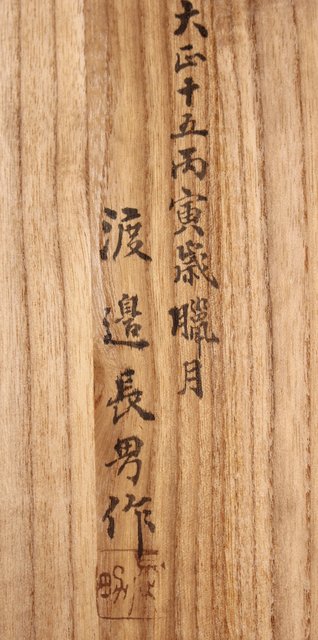 大正十五丙寅歳臘月
渡邉長男作